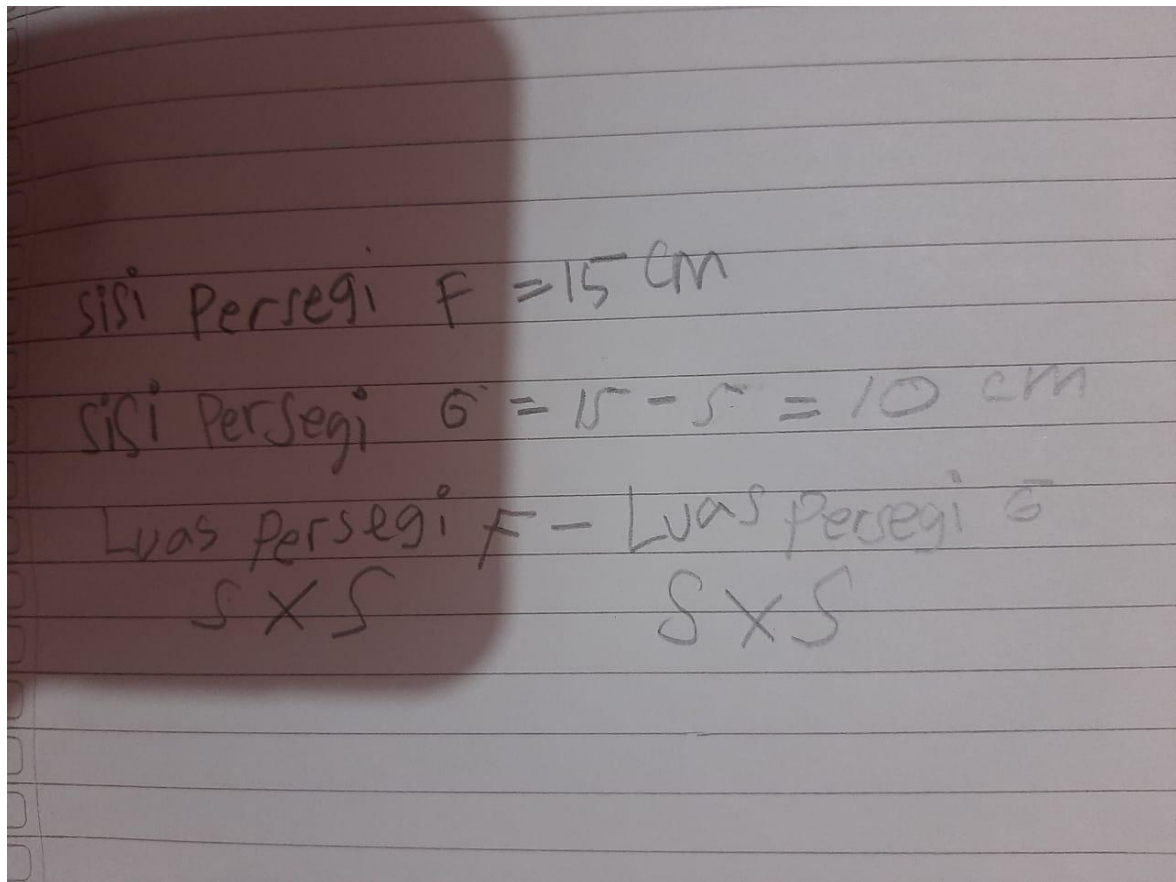 sisi Persegi F = 15 cm
sisi Persegi G = 15 - 5 = 10 cm
Luas Persegi F - Luas Persegi G
S X S S X S